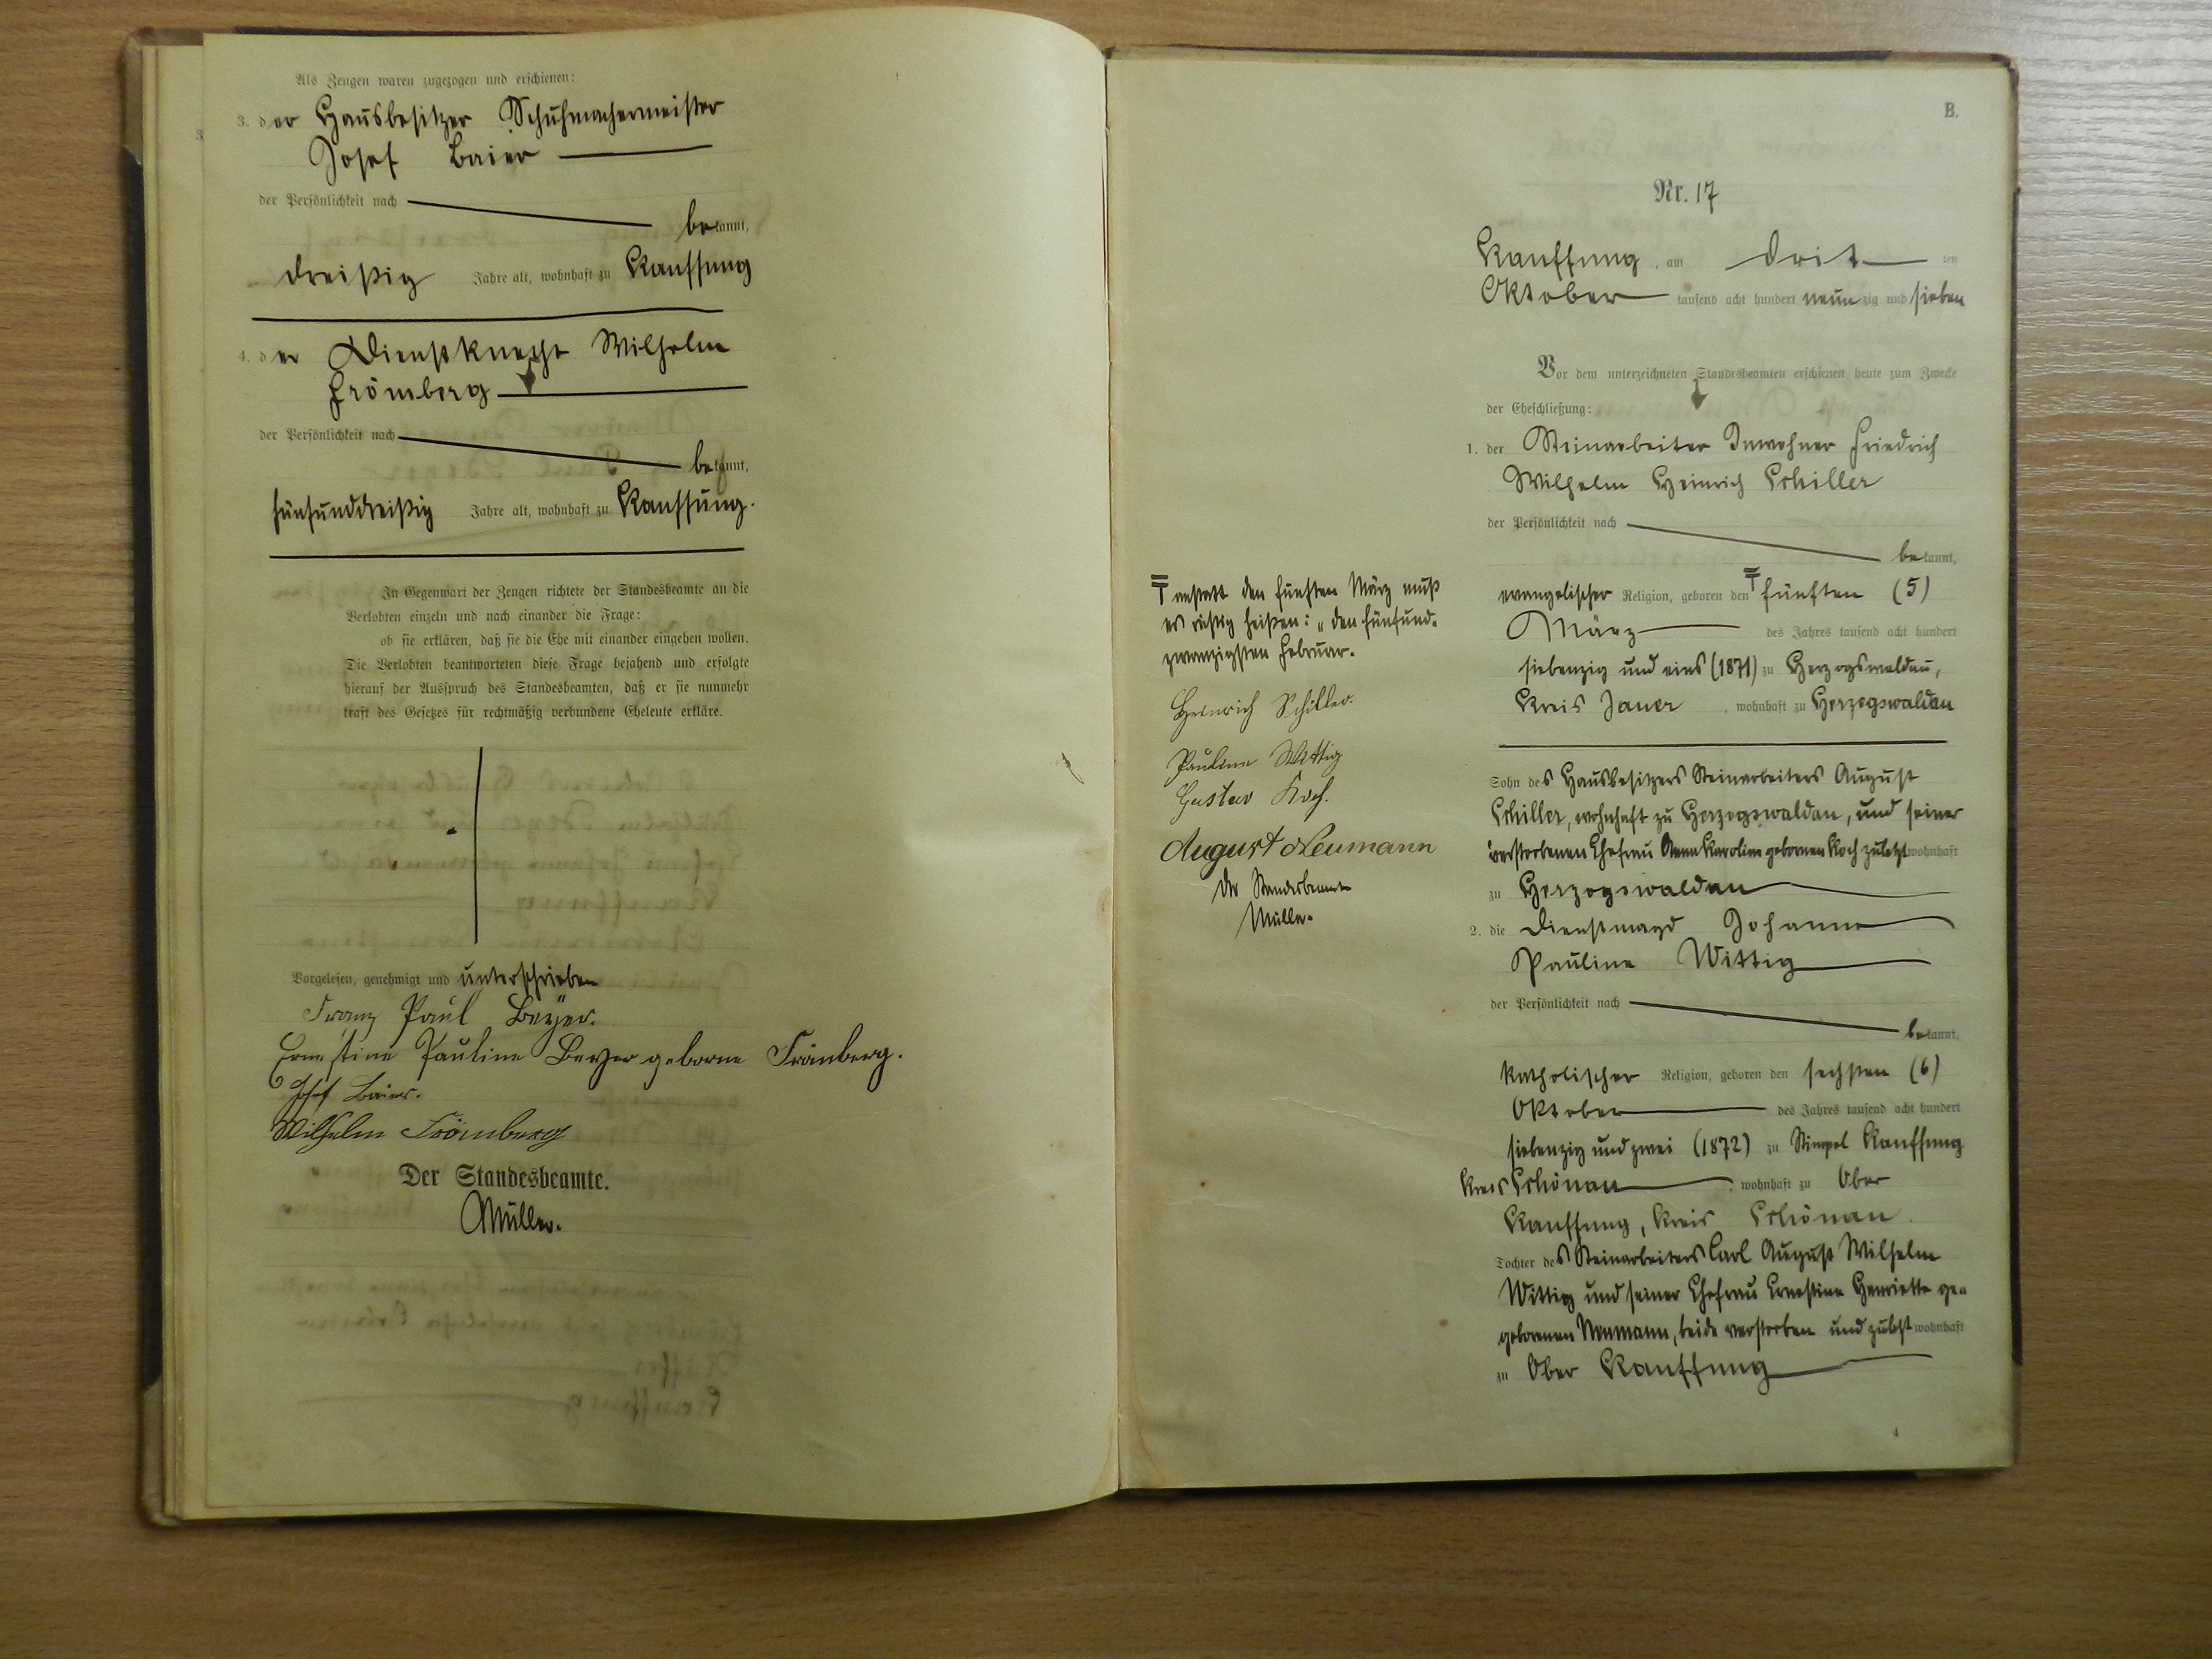 Als Zeugen waren zugezogen und erschienen:
3. der Hausbesitzer Schuhmachermeister
Josef Baier
der Persönlichkeit nach
bekannt,
dreißig Jahre alt, wohnhaft zu Kauffung
4. der Dienstknecht Wilhelm
Frömberg
der Persönlichkeit nach
bekannt,
fünfunddreißig Jahre alt, wohnhaft zu Kauffung.
In Gegenwart der Zeugen richtete der Standesbeamte an die
Verlobten einzeln und nach einander die Frage:
ob sie erklären, daß sie die Ehe mit einander eingehen wollen.
Die Verlobten beantworteten diese Frage bejahend und erfolgte
hierauf der Ausspruch des Standesbeamten, daß er sie nunmehr
kraft des Gesetzes für rechtmäßig verbundene Eheleute erkläre.
Vorgelesen, genehmigt und unterschrieben
Franz Paul Beyer.
Ernestine Pauline Beyer geborne Frömberg.
Josef Baier.
Wilhelm Frömberg
Der Standesbeamte.
Müller.
B.
Nr. 17
Kauffung, am drit ten
Oktober tausend acht hundert neunzig und sieben
Vor dem unterzeichneten Standesbeamten erschienen heute zum Zwecke
der Eheschließung:
1. der Steinarbeiter Inwohner Friedrich
Wilhelm Heinrich Schiller
der Persönlichkeit nach
bekannt,
evangelischer Religion, geboren den fünften (5)
März des Jahres tausend acht hundert
siebenzig und eins (1871) zu Herzogswaldau,
Kreis Jauer, wohnhaft zu Herzogswaldau
Sohn des Hausbesitzers Steinarbeiters August
Schiller, wohnhaft zu Herzogswaldau, und seiner
verstorbenen Ehefrau Anna Karoline gebornen Koch zuletzt wohnhaft
zu Herzogswaldau
2. die Dienstmagd Johanne
Pauline Wittig
der Persönlichkeit nach
bekannt,
katholischer Religion, geboren den sechsten (6)
Oktober des Jahres tausend acht hundert
siebenzig und zwei (1872) zu Stimpel Kauffung
Kreis Schönau, wohnhaft zu Ober
Kauffung, Kreis Schönau.
Tochter des Steinarbeiters Carl August Wilhelm
Wittig und seiner Ehefrau Ernestine Henriette ge=
gebornen Neumann, beide verstorben und zuletzt wohnhaft
zu Ober Kauffung
4
anstatt den fünften März muß
es richtig heißen: „den fünfund-
zwanzigsten Februar.
Heinrich Schiller.
Pauline Wittig
Gustav Koch.
August Neumann
Der Standesbeamte
Müller.